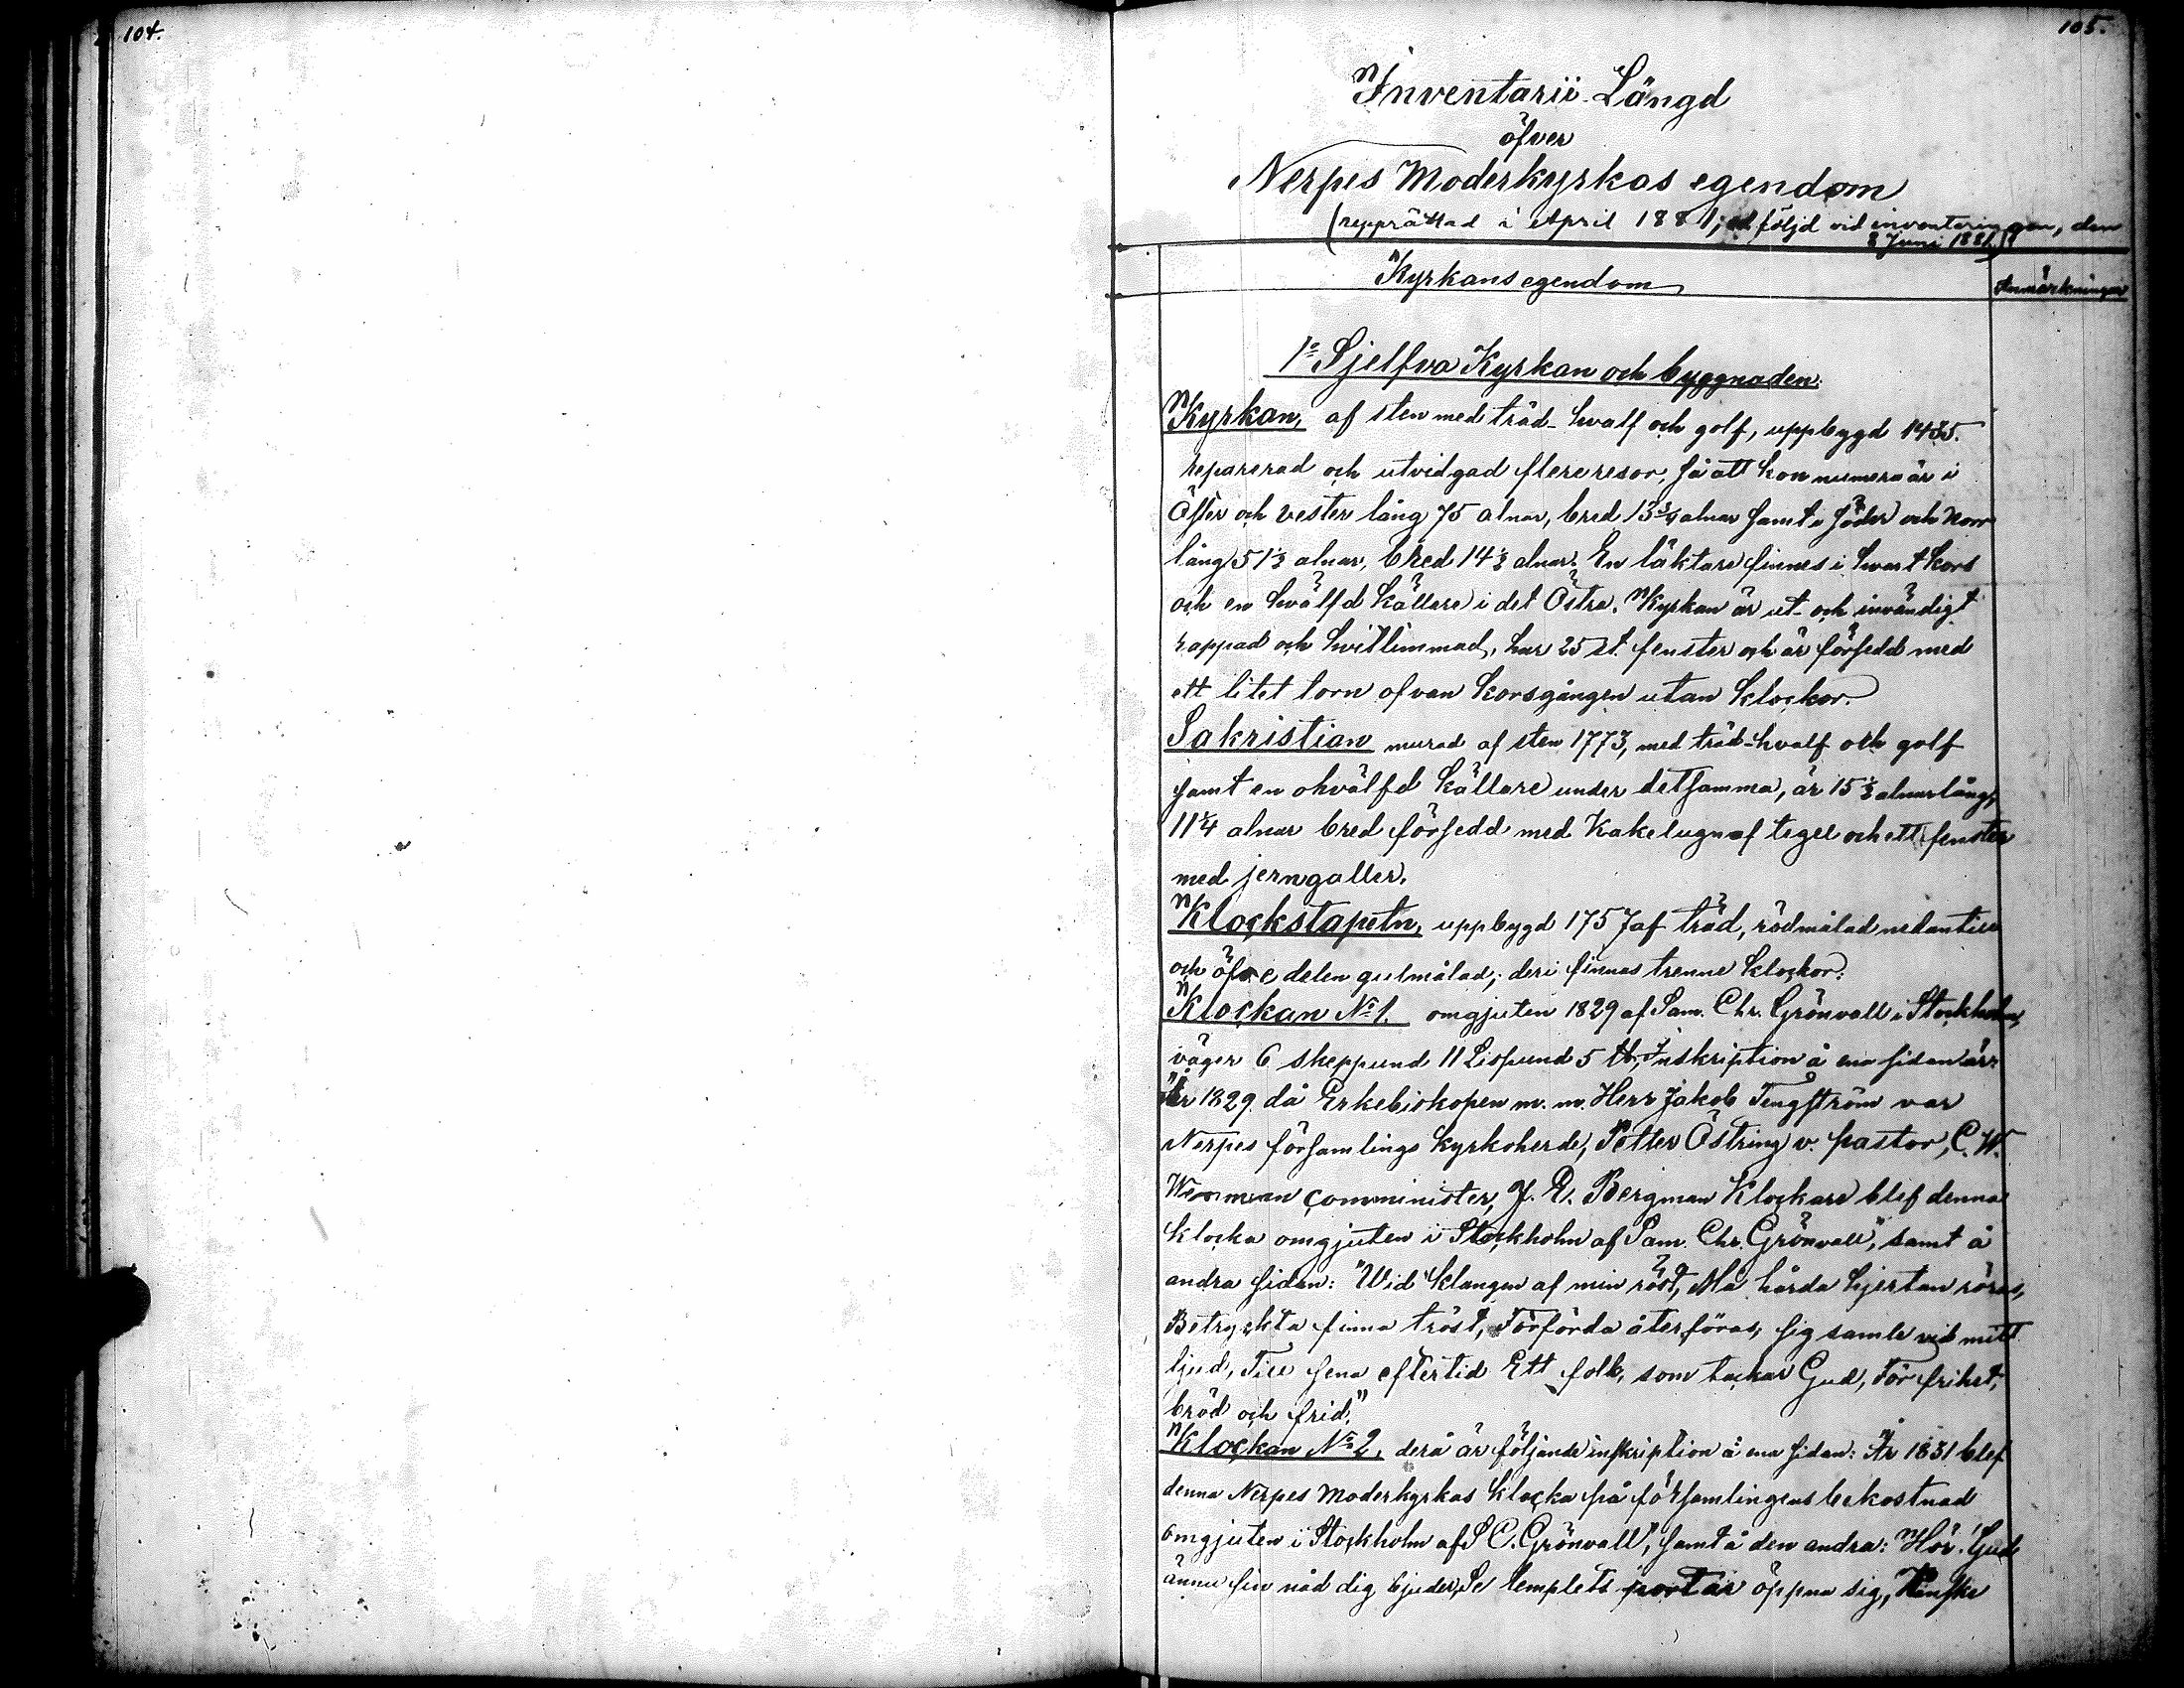 104.
105.
Inventarii-Längd
öfver
Nerpes Moderkyrkas egendom
(upprättad i April 1881, följd vid inventeringen, den
8 Juni 1881.)
Kyrkans egendom
Anmärkningar
1º Sjelfva Kyrkan och byggnaden.
Kyrkan, af sten med träd-hvalf och golf, uppbygd 1435.
reparerad och utvidgad flere resor, så att hon numera är i
Öster och vester lång 75 alnar, bred 13¾ alnar samt i söder och norr
lång 51½ alnar, bred 14½ alnar. En läktare finnes i hvart kors
och en hvälfd källare i det Östra. Kyrkan är ut- och invändigt
rappad och hvitlimmad, har 25 st. fenster och är försedd med
ett litet torn ofvan korsgången utan klockor.
Sakristian murad af sten 1773, med träd-hvalf och golf
samt en ohvälfd källare under detsamma, är 15½ alnar lång,
11¼ alnar bred försedd med Kakelugn af tegel och ett fenster
med jerngaller.
Klockstapeln, uppbygd 1757 af träd, rödmålad nedantill
och öfre delen gulmålad; deri finnas trenne klockor:
Klockan Nº 1. omgjuten 1829 af Sam. Chr. Grönvall i Stockholm,
väger 6 skeppund 11 Lispund 5 ℔, Inskription å ena sidan är:
"År 1829 då Erkebiskopen m. m. Herr Jakob Tengström var
Nerpes församlings kyrkoherde, Petter Östring v. pastor, C. W.
Wenman comminister, J. E. Bergman Klockare blef denna
klocka omgjuten i Stockholm af Sam. Chr. Grönvall", samt å
andra sidan: "Wid klangen af min röst, Må hårda hjertan röras,
Betryckta finna tröst, Förförda återföras, sig samle vid mitt
ljud, Till sena eftertid Ett folk, som tackar Gud, För frihet,
bröd och frid."
Klockan Nº 2. derå är följande inskription å ena sidan: År 1831 blef
denna Nerpes Moderkyrkas klocka på församlingens bekostnad
omgjuten i Stockholm af S C. Grönvall", samt å den andra: "Hör! Gud
ännu sin nåd dig bjuder, Se templets portar öppna sig,